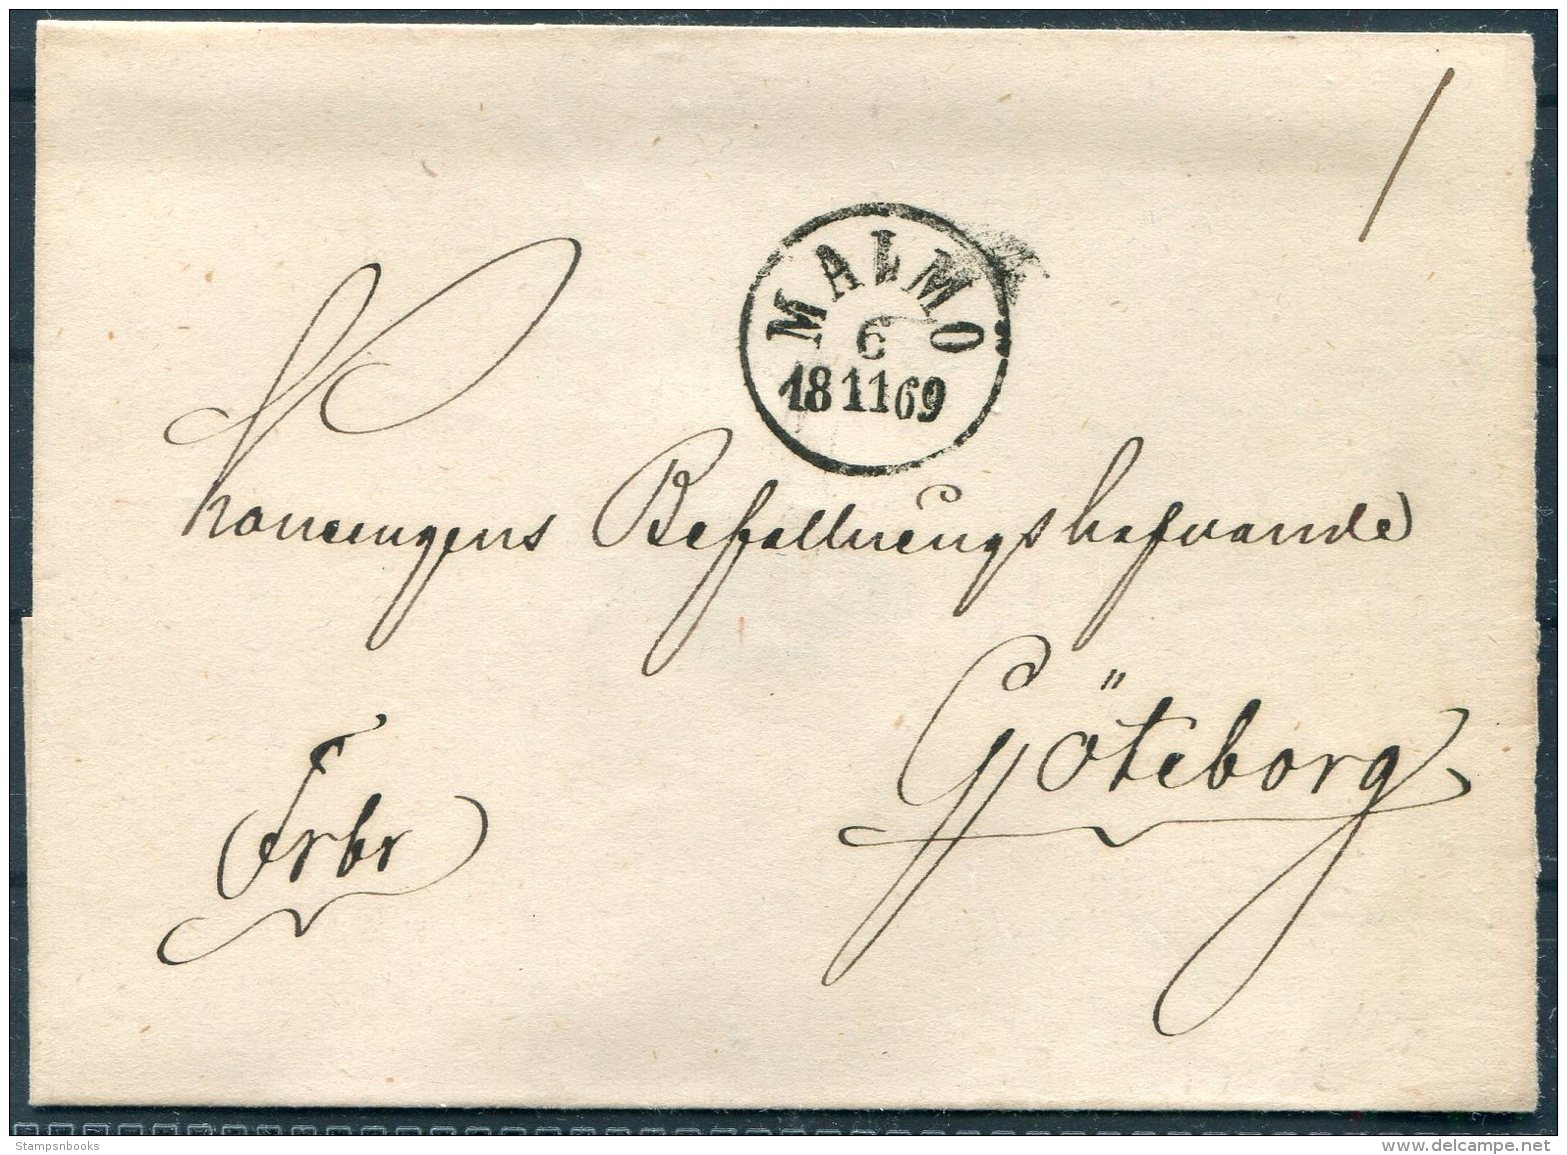 1
MALMÖ
6
18 11 69
Konungens Befallningshafvande
Göteborg
Frbr
Stampsnbooks
www.delcampe.net